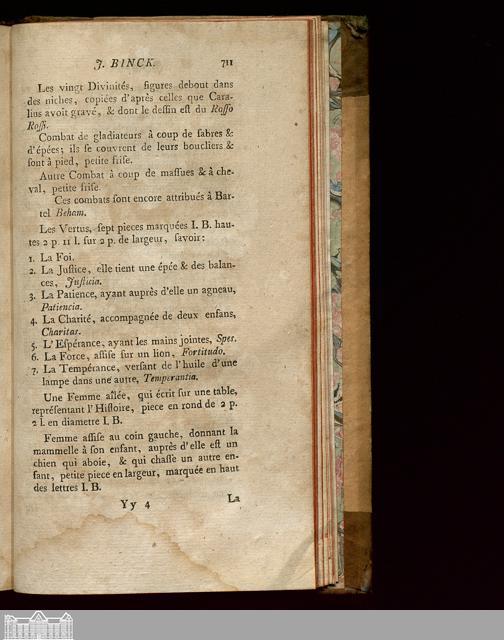 J. BINCK. 711
Les vingt Divinités, figures debout dans
des niches, copiées d'après celles que Cara-
lius avoit gravé, & dont le dessin est du Rosso
Rossi.
Combat de gladiateurs à coup de sabres &
d'épées; ils se couvrent de leurs boucliers &
sont à pied, petite frise.
Autre Combat à coup de massues & à che-
val, petite frise.
Ces combats sont encore attribués à Bar-
tel Beham.
Les Vertus, sept pieces marquées I. B. hau-
tes 2 p. 11 l. sur 2 p. de largeur, savoir:
1. La Foi.
2. La Justice, elle tient une épée & des balan-
ces, Justicia.
3. La Patience, ayant auprès d'elle un agneau,
Patiencia.
4. La Charité, accompagnée de deux enfans,
Charitas.
5. L'Espérance, ayant les mains jointes, Spes.
6. La Force, assise sur un lion, Fortitudo.
7. La Tempérance, versant de l'huile d'une
lampe dans une autre, Temperantia.
Une Femme ailée, qui écrit sur une table,
représentant l'Histoire, piece en rond de 2 p.
2 l. en diametre I. B.
Femme assise au coin gauche, donnant la
mammelle à son enfant, auprès d'elle est un
chien qui aboie, & qui chasse un autre en-
fant, petite piece en largeur, marquée en haut
des lettres I. B.
Yy 4 La